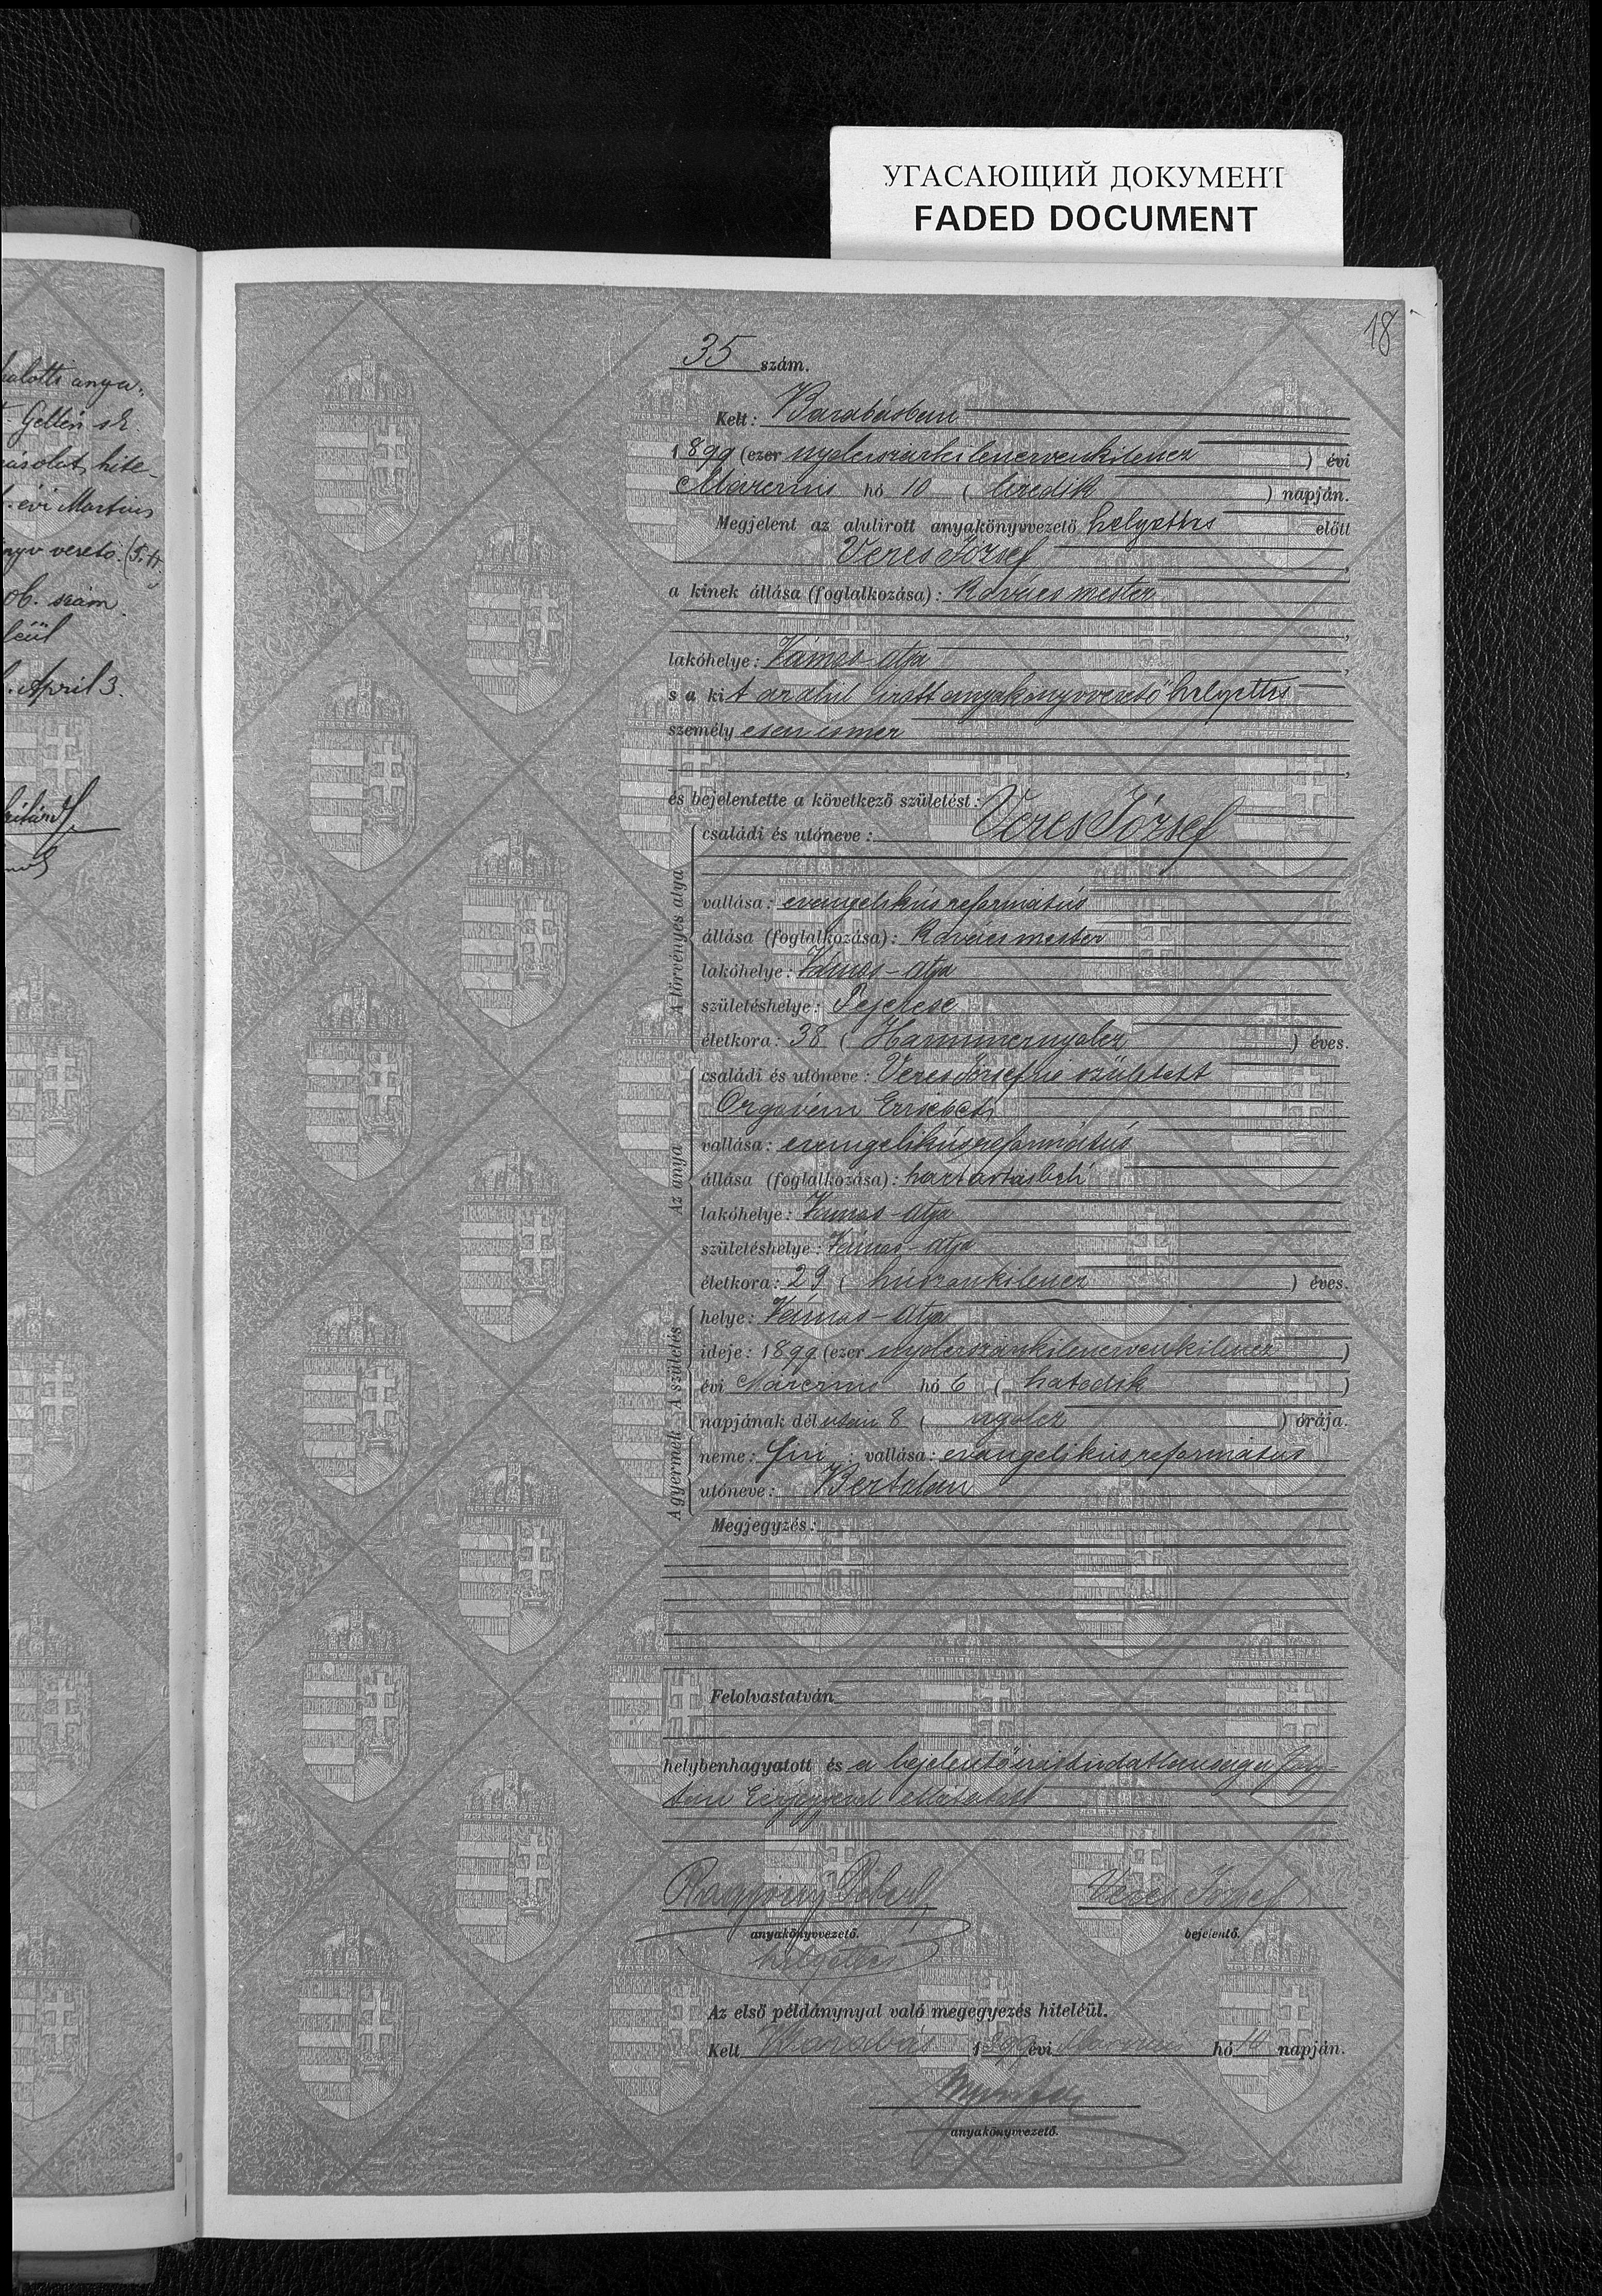 УГАСАЮЩИЙ ДОКУМЕНТ
FADED DOCUMENT
18
halotti anya-
Gellén sk.
hite-
évi Martius
ob. szám.
April 3.
35 szám.
Kelt: Barabásban
1899 (ezer nyolczszázkilenczvenkilencz) évi
Márczius hó 10 (tizedik) napján.
Megjelent az alulirott anyakönyvvezető helyettes előtt
Veres József,
a kinek állása (foglalkozása): Kovács mester
,
lakóhelye: Vámos-Atya,
s a kit az alul irott anyakönyvvezető helyettes
személyesen ismer
,
és bejelentette a következő születést:
A törvényes atya
családi és utóneve: Veres József
vallása: evangelikús református
állása (foglalkozása): Kovács mester
lakóhelye: Vámos-Atya
születéshelye:
életkora: 38 (Harmincznyolcz) éves.
Az anya
családi és utóneve: Veres Józsefné született
Orgován Erzsébet
vallása: evangelikús református
állása (foglalkozása): háztartásbeli
lakóhelye: Vámos-Atya
születéshelye: Vámos-Atya
életkora: 29 (húszonkilencz) éves.
A születés
helye: Vámos-Atya
ideje: 1899 (ezer nyolczszázkilenczvenkilencz)
évi Márczius hó 6 (hatodik)
napjának délután 8 (nyolcz) órája.
A gyermek
neme: fiú; vallása: evangelikus református
utóneve: Bertalan
Megjegyzés:
Felolvastatván
helybenhagyatott és a bejelentő írástudatlansága foly-
tán kézjegyével ellátatott
Veres József
anyakönyvvezető. bejelentő.
helyettes
Az első példánynyal való megegyezés hiteléül.
Kelt Barabás 1899 évi Márczius hó 10 napján.
anyakönyvvezető.